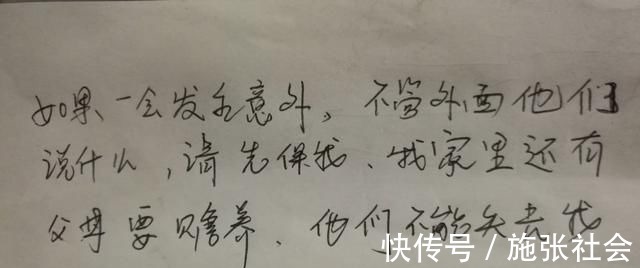 如果一会发生意外，不管外面他们
说什么，请先保我、我家里还有
父母要赡养、他们不能失去我
快传号／施张社会